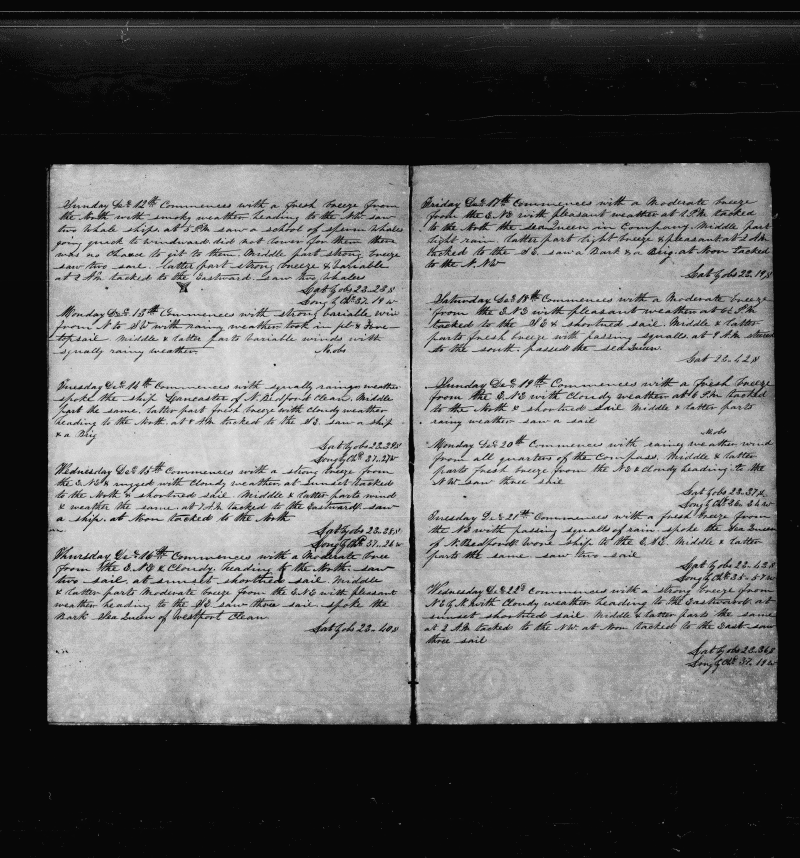 Sunday Dec 12th Commences with a fresh breeze from
the North with smoky weather heading to the NW saw
two whale ships at 5 P.M saw a school of sperm whales
going quick to windward did not lower for them there
was no chance to git to them. Middle part strong breeze
saw two sail. latter part strong breeze & variable
at 2 A.M tacked to the Eastward. Saw two whales
Lat by obs 23-23 S
Long by Ch 37.19 W
Monday Dec 13th Commences with strong variable win
from N to SW with rainy weather took in jib & Fore-
topsail middle & latter parts variable winds with
squally rainy weather
No obs
Tuesday Dec 14th Commences with squally rainy weather
spoke the ship Lancaster of N. Bedford Clean. Middle
part the same. latter part fresh breeze with cloudy weather
heading to the North. at 8 A.M tacked to the SE. saw a ship
& a Brig
Lat by obs 23-39 S
Long by Ch 37.27 W
Wednesday Dec 15th Commences with a strong breeze from
the E.NE & rugged with Cloudy weather at sunset tacked
to the North & shortned sail. Middle & latter parts wind
& weather the same. at 1 A.M tacked to the Eastward. saw
a ship. at Noon tacked to the North
Lat by obs 23-28 S
Long by Ch 37-26 W
Thursday Dec 16th Commences with a Moderate breeze
from the E.NE & Cloudy. heading to the North. saw
two sail. at sunset shortned sail. Middle
& latter parts Moderate breeze from the E.NE with pleasant
weather heading to the SE saw three sail spoke the
Bark Sea Queen of Westport Clean
Lat by obs 23-40 S
Friday Dec 17th Commences with a Moderate breeze
from the E.NE with pleasant weather at 1 P.M tacked
to the North the Sea Queen in Company. Middle part
light rain latter part light breeze & pleasant at 2 A.M
tacked to the SE. saw a Bark & a Brig. at Noon tacked
to the N.NE
Lat by obs 23.19 S
Saturday Dec 18th Commences with a Moderate breeze
from the E.NE with pleasant weather at 6½ P.M
tacked to the SE & shortned sail. Middle & latter
parts fresh breeze with passing squalls at 9 A.M steered
to the south. passed the Sea Queen
Lat 23-42 S
Sunday Dec 19th Commences with a fresh breeze
from the E.NE with cloudy weather at 6 P.M tacked
to the North & shortned sail Middle & latter parts
rainy weather saw a sail
No obs
Monday Dec 20th Commences with rainy weather wind
from all quarters of the Compass. Middle & latter
parts fresh breeze from the NE & cloudy heading to the
N.W saw three ship
Lat by obs 23-37 S
Long by Ch 36-34 W
Tuesday Dec 21st Commences with a fresh breeze from
the NE with passing squalls of rain. spoke the Sea Queen
of N. Bedford wore ship to the E.NE. Middle & latter
parts the same saw two sail
Lat by obs 23-42 S
Long by Ch 35-57 W
Wednesday Dec 22d Commences with a strong breeze from
NE by N with cloudy weather heading to the Eastward at
sunset shortned sail Middle & latter parts the same
at 2 A.M tacked to the NW at Noon tacked to the East saw
three sail
Lat by obs 23.36 S
Long by Ch 37.19 W